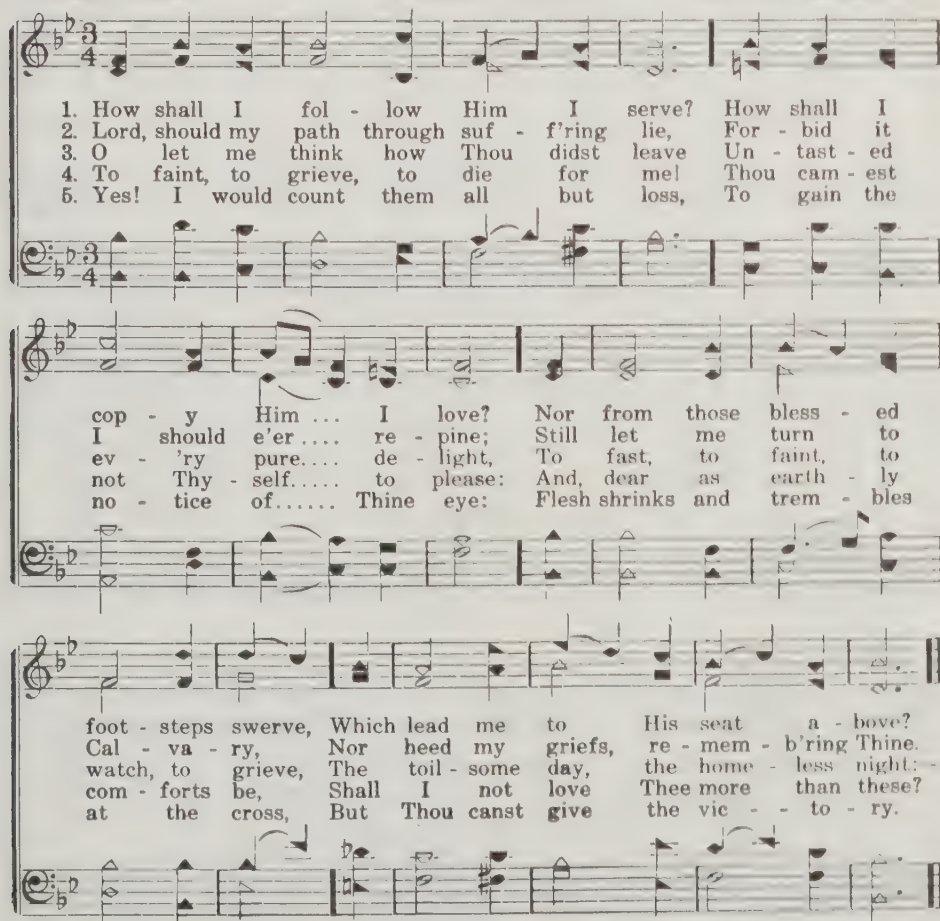 3
4
1. How shall I fol - low Him I serve? How shall I
2. Lord, should my path through suf - f'ring lie, For - bid it
3. O let me think how Thou didst leave Un - tast - ed
4. To faint, to grieve, to die for me! Thou cam - est
5. Yes! I would count them all but loss, To gain the
3
4
cop - y Him ... I love? Nor from those bless - ed
I should e'er .... re - pine; Still let me turn to
ev - 'ry pure.... de - light, To fast, to faint, to
not Thy - self..... to please: And, dear as earth - ly
no - tice of...... Thine eye: Flesh shrinks and trem - bles
foot - steps swerve, Which lead me to His seat a - bove?
Cal - va - ry, Nor heed my griefs, re - mem - b'ring Thine.
watch, to grieve, The toil - some day, the home - less night: -
com - forts be, Shall I not love Thee more than these?
at the cross, But Thou canst give the vic - - to - ry.